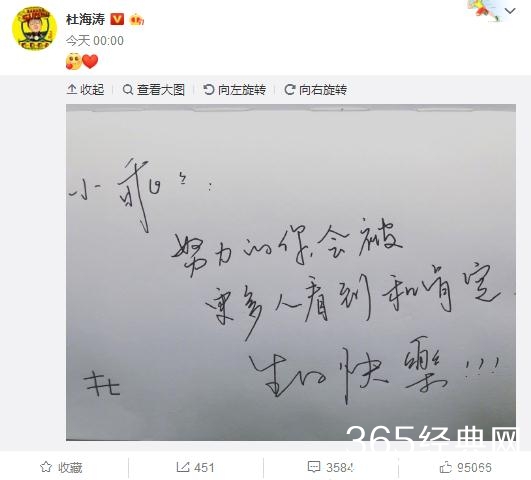 杜海涛
今天 00:00
收起 查看大图 向左旋转 向右旋转
小乖:
努力的你,会被
更多人看到和肯定.
生日快樂!!!
365经典网
收藏 451 3584 95066